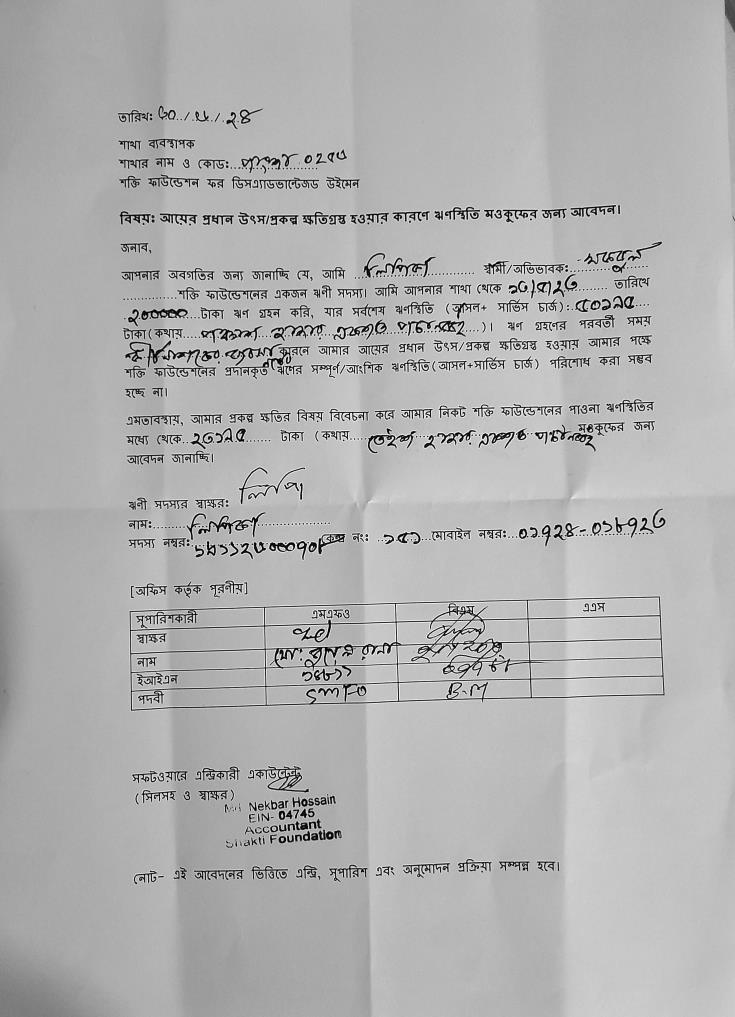 তারিখঃ ৩০/৬/২৪
শাখা ব্যবস্থাপক
শাখার নাম ও কোডঃ
শক্তি ফাউন্ডেশন ফর ডিসএ্যাডভান্টেজড উইমেন
বিষয়ঃ আয়ের প্রধান উৎস/প্রকল্প ক্ষতিগ্রস্থ হওয়ার কারণে ঋণস্থিতি মওকুফের জন্য আবেদন।
জনাব,
আপনার অবগতির জন্য জানাচ্ছি যে, আমি লিপিকা স্বামী/অভিভাবকঃ
শক্তি ফাউন্ডেশনের একজন ঋনী সদস্য। আমি আপনার শাখা থেকে তারিখে
২০০০০০ টাকা ঋণ গ্রহন করি, যার সর্বশেষ ঋণস্থিতি (আসল+ সার্ভিস চার্জ)ঃ ৫০১৯৫
টাকা (কথায় পঞ্চাশ হাজার একশত পচানব্বই)। ঋণ গ্রহণের পরবর্তী সময়
কারনে আমার আয়ের প্রধান উৎস/প্রকল্প ক্ষতিগ্রস্থ হওয়ায় আমার পক্ষে
শক্তি ফাউন্ডেশনের প্রদানকৃত ঋণের সম্পূর্ণ/আংশিক ঋণস্থিতি (আসল+সার্ভিস চার্জ) পরিশোধ করা সম্ভব
হচ্ছে না।
এমতাবস্থায়, আমার প্রকল্প ক্ষতির বিষয় বিবেচনা করে আমার নিকট শক্তি ফাউন্ডেশনের পাওনা ঋণস্থিতির
মধ্যে থেকে ২৩১৯৫ টাকা (কথায় তেইশ হাজার একশত পচানব্বই মওকুফের জন্য
আবেদন জানাচ্ছি।
ঋণী সদস্যর স্বাক্ষরঃ লিপি
নামঃ লিপিকা
সদস্য নম্বরঃ কেন্দ্র নংঃ মোবাইল নম্বরঃ ০১৭২৪-০১৮৭২৬
[অফিস কর্তৃক পূরনীয়]
সুপারিশকারী এমএফও বিএম এএস
স্বাক্ষর
নাম মোঃ রানা
ইআইএন
পদবী SMFO B.M
সফটওয়ারে এন্ট্রিকারী একাউন্টেন্ট
(সিলসহ ও স্বাক্ষর)
Md. Nekbar Hossain
EIN- 04745
Accountant
Shakti Foundation
নোট- এই আবেদনের ভিত্তিতে এন্ট্রি, সুপারিশ এবং অনুমোদন প্রক্রিয়া সম্পন্ন হবে।